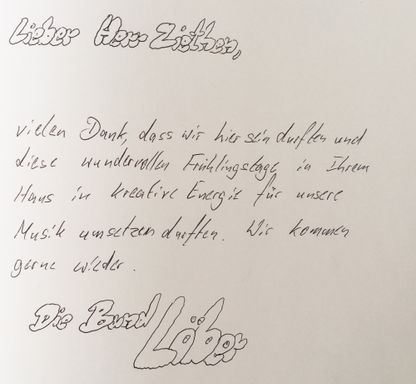 Lieber Herr Ziethen,
vielen Dank, dass wir hier sein durften und
diese wundervollen Frühlingstage in Ihrem
Haus in kreative Energie für unsere
Musik umsetzen durften. Wir kommen
gerne wieder.
Die Band Löber